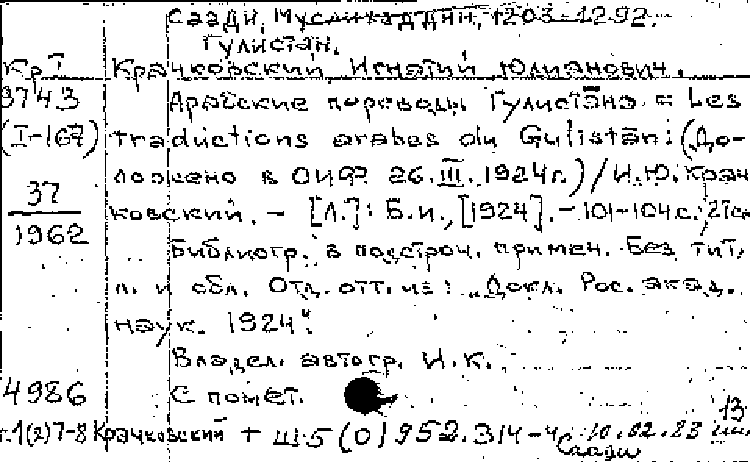 Саади, Муслихаддин, 1203-1292.
Гулистан.
Кр I Крачковский Игнатий Юлианович.
3743 Арабские переводы Гулистāна = Les
(I-167) traductions arabes du Gulistān: (До-
ложено в ОИФ 26.III.1924г.) / И.Ю. Крач
37 ковский. - [Л.]: Б.и., [1924]. - 101-104 с.; 27см
1962
Библиогр. в подстроч. примеч. Без тит.
л. и обл. Отд. отт. из: „Докл. Рос. акад.
наук. 1924".
Владел. автогр. И.К.
4986 С помет.
13
т.1(2)7-8 Крачковский + Ш5(0)952.314-4 10.02.83
Саади